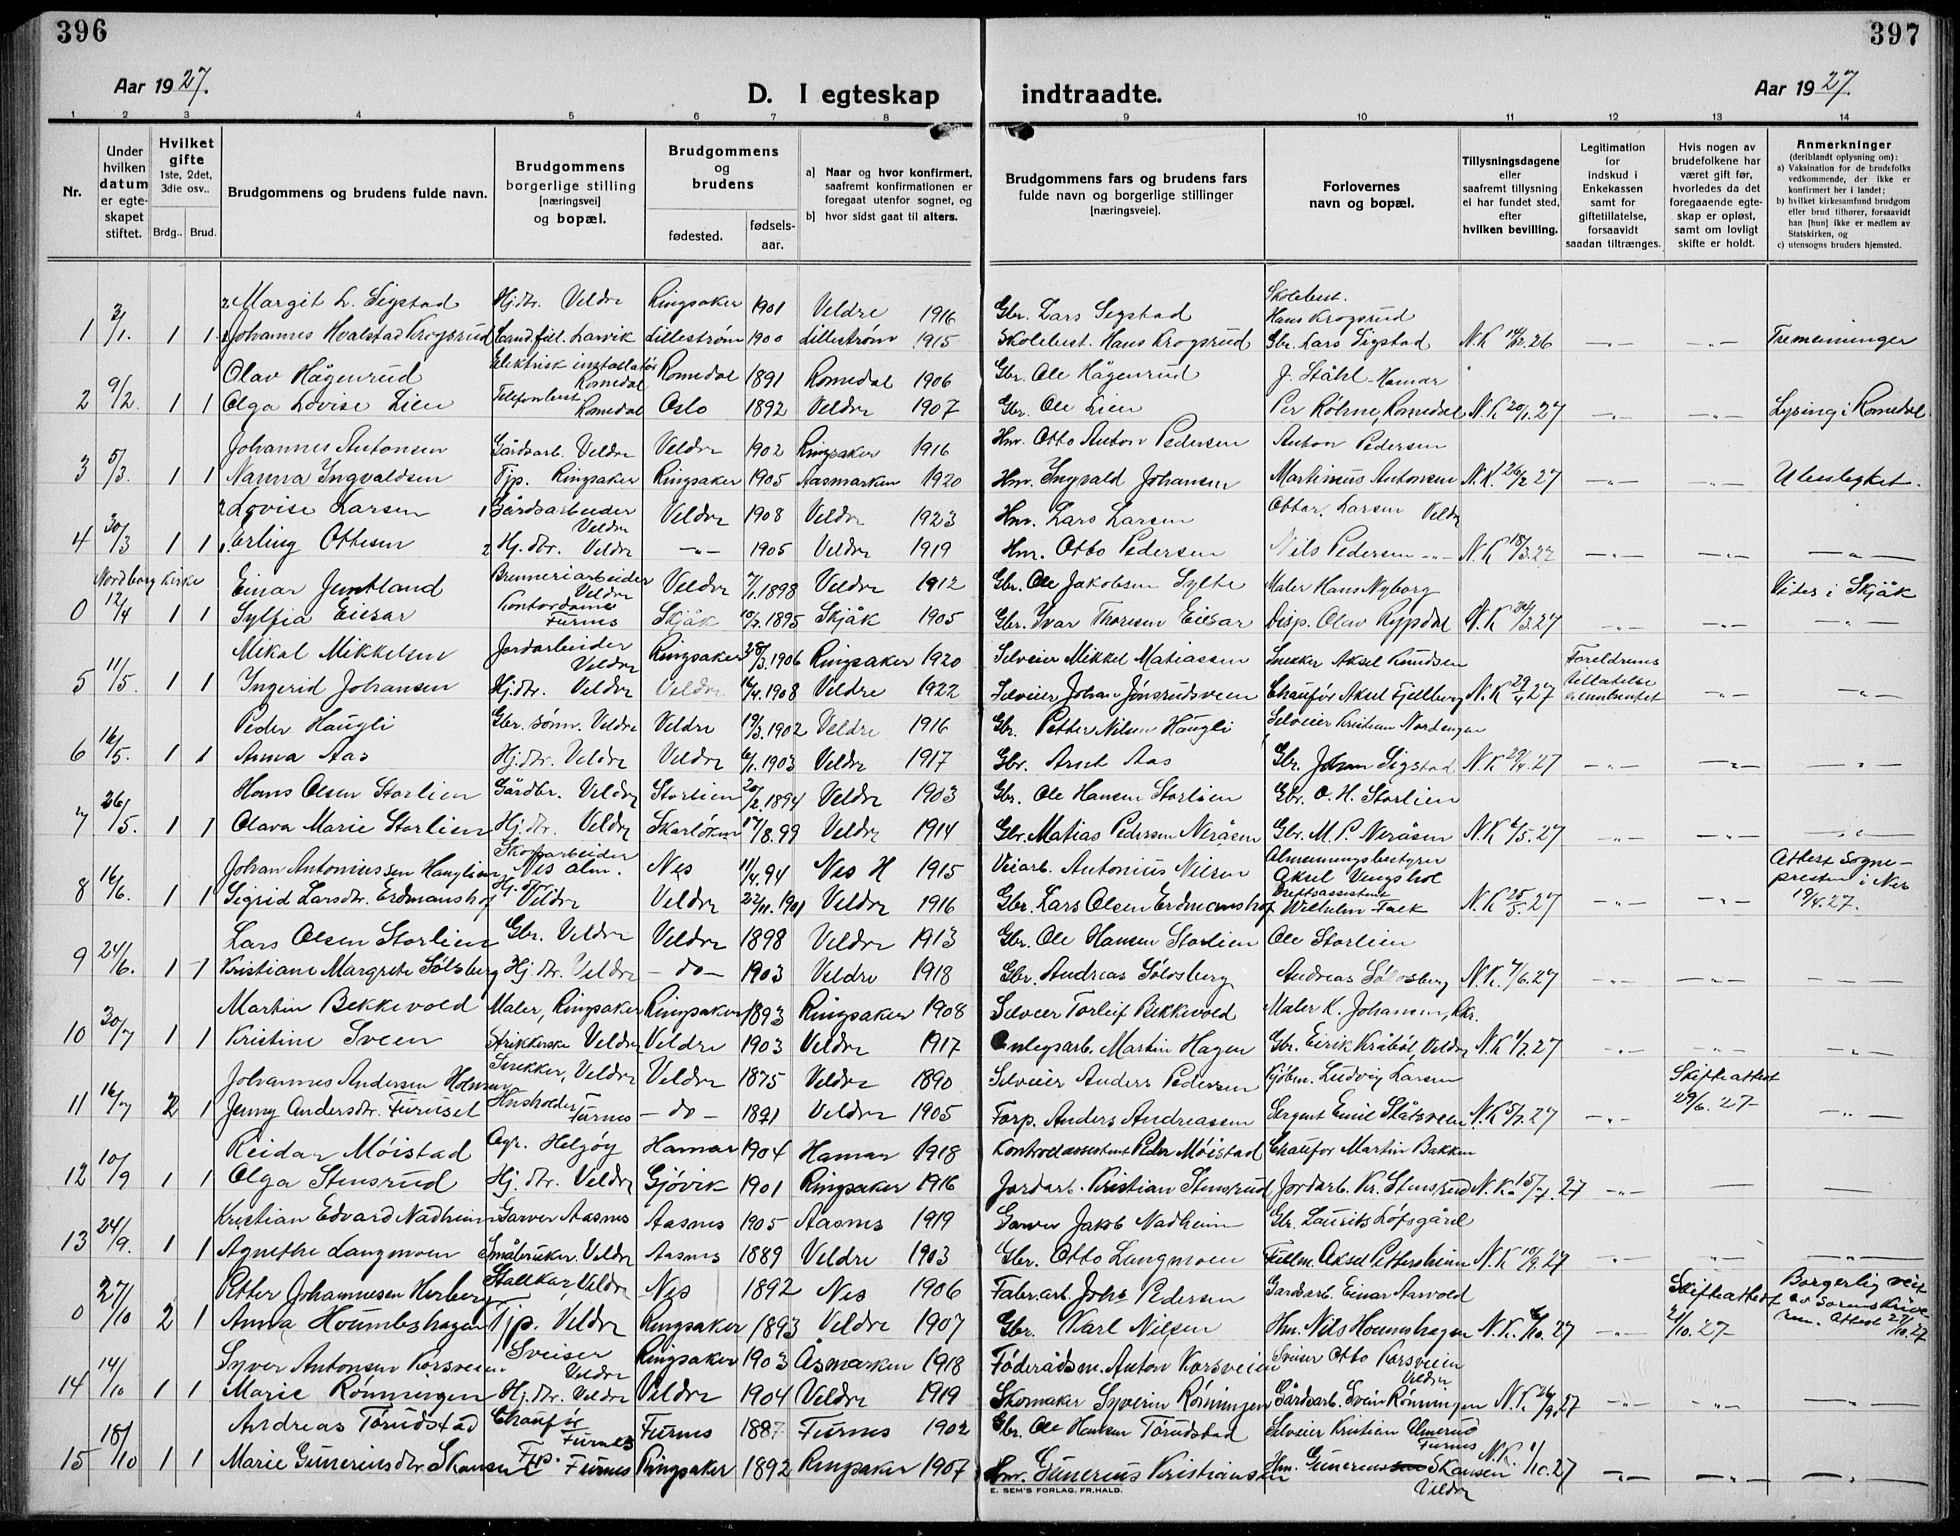 396
397
Aar 1927.
D. I egteskap indtraadte.
Aar 1927.
1 2 3 4 5 6 7 8 9 10 11 12 13 14
Nr.
Under hvilken datum er egteskapet stiftet.
Hvilket gifte 1ste, 2det, 3die osv..
Brdg.. Brud.
Brudgommens og brudens fulde navn.
Brudgommens borgerlige stilling [næringsvei] og bopæl.
Brudgommens og brudens
fødested.
fødselsaar.
a) Naar og hvor konfirmert, saafremt konfirmationen er foregaat utenfor sognet, og
b) hvor sidst gaat til alters.
Brudgommens fars og brudens fars fulde navn og borgerlige stillinger [næringsveie].
Forlovernes navn og bopæl.
Tillysningsdagene eller saafremt tillysning ei har fundet sted, efter hvilken bevilling.
Legitimation for indskud i Enkekassen samt for giftetillatelse, forsaavidt saadan tiltrænges.
Hvis nogen av brudefolkene har været gift før, hvorledes da det foregaaende egteskap er opløst, samt om lovligt skifte er holdt.
Anmerkninger
(deriblandt oplysning om):
a) Vaksination for de brudefolks vedkommende, der ikke er konfirmert her i landet;
b) hvilket kirkesamfund brudgom eller brud tilhører, forsaavidt han [hun] ikke er medlem av Statskirken, og
c) utensogns bruders hjemsted.
2 Margit L. Sigstad Hj.dtr. Veldre Ringsaker 1901 Veldre 1916 Gbr. Lars Sigstad Skolebest. Hans Krogsrud
1 3/1. 1 1 Johannes Hvalstad Krogsrud Cand.fil. Larvik Lillestrøm 1900 Lillestrøm 1915 Skolebest. Hans Krogsrud Gbr. Lars Sigstad N.K 26 —„— —„— Tremenninger
Olav Hågenrud Elektrisk installatør Romedal Romedal 1891 Romedal 1906 Gbr. Ole Hågenrud J. Ståhl Hamar
2 9/2. 1 1 Olga Lovise Lien Telefonbest. Romedal Oslo 1892 Veldre 1907 Gbr. Ole Lien Per Röhne, Romedal N.K 20/1.27 —„— —„— Lysing i Romedal
Johannes Antonsen Gårdsarb. Veldre Veldre 1902 Ringsaker 1916 Hm. Otto Anton Pedersen Anton Pedersen
3 5/3. 1 1 Nanna Ingvaldsen Tjp. Ringsaker Ringsaker 1905 Aasmarken 1920 Hm. Ingvald Johansen Martinus Antonsen N.K. 26/2 27 —„— —„— Ubeslegtet.
2 Lovise Larsen 1 Gårdsarbeider Veldre Veldre 1908 Veldre 1923 Hm. Lars Larsen Ottar Larsen Veldre
4 30/3 1 1 1. Erling Ottesen 2 Hj.dtr. Veldre —„— 1905 Veldre 1919 Hm. Otto Pedersen Nils Pedersen —„— N.K 18/3.27 —„— —„— —„—
Nordborg kirke Einar Jemtland Brenneriarbeider Veldre Veldre 7/1.1898 Veldre 1912 Gbr. Ole Jakobsen Sylte Maler Hans Nyborg Vider i Skjåk
0 12/4 1 1 Sylfia Eiesar Kontordame Furnes Skjåk 10/7.1895 Skjåk 1905 Gbr. Ivar Thoresen Eiesar Disp. Olav Rypdal N.K /3.27 —„— —„— —„—
Mikal Mikkelsen Jordarbeider Veldre Ringsaker 28/3.1906 Ringsaker 1920 Selveier Mikkel Matiassen Snekker Aksel Knudsen Foreldrenes
5 11/5. 1 1 Ingerid Johansen Hj.dtr. Veldre Veldre 16/4.1908 Veldre 1922 Selveier Johan Jönsrudsveen Chaufør Aksel Fjellberg N.K 29/4 27 tillatelse —„— —„—
Peder Haugli Gbr. sönn. Veldre Veldre 19/3.1902 Veldre 1916 Gbr. Petter Nilsen Haugli Selveier Kristian Nordengen
6 16/5. 1 1 Anna Aas Hj.dtr. Veldre Veldre 6/1.1903 Veldre 1917 Gbr. Arnt Aas Gbr. Johan Sigstad N.K 29/4.27 —„— —„— —„—
Hans Olsen Storlien Gårdbr. Veldre Storlien 20/2.1894 Veldre 1903 Gbr. Ole Hansen Storlien Gbr. O. H. Storlien
7 26/5. 1 1 Olava Marie Storlien Hj.dtr. Veldre Skarlöken 17/8.99 Veldre 1914 Gbr. Matias Pedersen Neråsen Gbr. M. P. Neråsen N.K 6/5.27 —„— —„— —„—
Johan Antoniussen Hauglien Skogsarbeider Nes alm. Nes 11/4.94 Nes H 1915 Veiarb. Antonius Nilsen Almenningsbestyrer Aksel Vengshol Attest sogne-
8 16/6. 1 1 Sigrid Larsdtr. Erdmanshof Hj.dtr. Veldre Veldre 22/11.1901 Veldre 1916 Gbr. Lars Olsen Erdmanshof Wilhelm Falk N.K 25/5.27 —„— —„— presten i Nes 19/4.27.
Lars Olsen Storlien Gbr. Veldre Veldre 1898 Veldre 1913 Gbr. Ole Hansen Storlien Ole Storlien
9 24/6. 1 1 Kristiane Margrete Sölsberg Hj.dtr. Veldre —do— 1903 Veldre 1918 Gbr. Andreas Sölosberg Andreas Sölosberg N.K. 7/6.27 —„— —„— —„—
Martin Bekkevold Maler, Ringsaker Ringsaker 1893 Ringsaker 1908 Selveier Torleif Bekkevold Maler K. Johansen, Rkr.
10 30/7 1 1 Kristine Sveen Strikkerske Veldre Veldre 1903 Veldre 1917 Anlegsarb. Martin Hagen Gbr. Eirik Kråböl, Veldre N.K 1/7.27 —„— —„— —„—
Johannes Andersen Holmen Snekker, Veldre Veldre 1875 Veldre 1890 Selveier Anders Pedersen Kjöbm. Ludvig Larsen Skifteattest
11 16/7 2 1 Jenny Andersdtr. Furuset Husholder Furnes —do— 1891 Veldre 1905 Forp. Anders Andreassen Sergent Emil Slåtsveen N.K 5/7.27 —„— 29/6.27— —„—
Reidar Möistad Agr. Helgøy Hamar 1904 Hamar 1918 Kontrollassistent Peder Möistad Chaufør Martin Bakken
12 10/9 1 1 Olga Stensrud Hj.dtr. Veldre Gjövik 1901 Ringsaker 1916 Jordarb. Kristian Stensrud Jordarb. Kr. Stensrud N.K. 15/7.27 —„— — —
Kristian Edvard Nadheim Garver Aasnes Aasnes 1905 Aasnes 1919 Garver Jakob Nadheim Gbr. Laurits Löfsgård
13 24/9. 1 1 Agnethe Langmoen Småbruker Veldre Aasnes 1889 Veldre 1903 Gbr. Otto Langmoen Fullm. Aksel Pettersheim N.K 10/9.27 —„— —„— —„—
Petter Johannesen Herberg Stallkar, Veldre Nes 1892 Nes 1906 Fabr.arb. Johs Pedersen Gardsarb. Einar Aarvold Skifteattest Borgerlig viet
0 27/10 2 1 Anna Houmbshagen Tjp. Veldre Ringsaker 1893 Veldre 1907 Gbr. Karl Nilsen Hm. Nils Houmshagen N.K. 6/10.27 —„— 2/10.27— av Sorenskriveren. Attest 27/10.27
Syver Antonsen Korsveien Sveiser Veldre Ringsaker 1903 Åsmarken 1918 Föderådsm. Anton Korsveien Sveiser Otto Korsveien Veldre
14 14/10 1 1 Marie Rönningen Hj.dtr. Veldre Veldre 1904 Veldre 1919 Skomaker Syverin Rönningen Gårdsarb. Svein Rönningen N.K. 26/9.27 —„— —„— —„—
Andreas Törudstad Chaufør Furnes Furnes 1887 Furnes 1902 Gbr. Ole Hansen Törudstad Selveier Kristian Almerud Furnes
15 18/10 1 1 Marie Gunneriusdtr Skansen Tjp. Furnes Ringsaker 1892 Ringsaker 1907 Hm. Gunerius Kristiansen Hm. Gunerius Skansen Veldre N.K. 1/10.27 —„— —„— —„—
E. SEM'S FORLAG, FR.HALD.